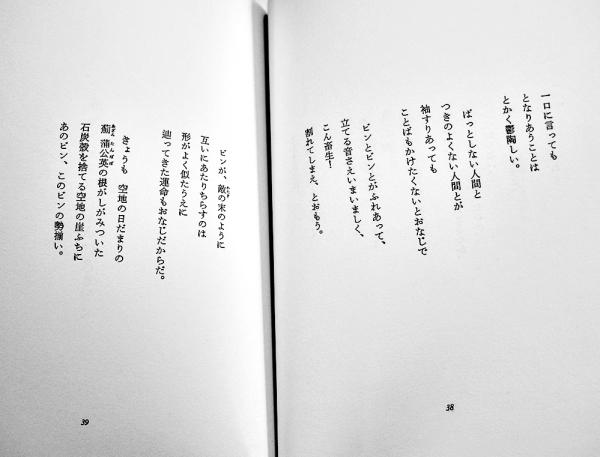 一口に言っても
となりあうことは
とかく鬱陶しい。
ぱっとしない人間と
つきのよくない人間とが
袖すりあっても
ことばもかけたくないとおなじで
ビンとビンとがふれあって、
立てる音さえいまいましく、
こん畜生!
割れてしまえ、とおもう。
38
ビンが、敵の末のように
互いにあたりちらすのは
形がよく似たうえに
辿ってきた運命もおなじだからだ。
きょうも 空地の日だまりの
薊 蒲公英の根がしがみついた
石炭殻を捨てる空地の崖ぶちに
あのビン、このビンの勢揃い。
39